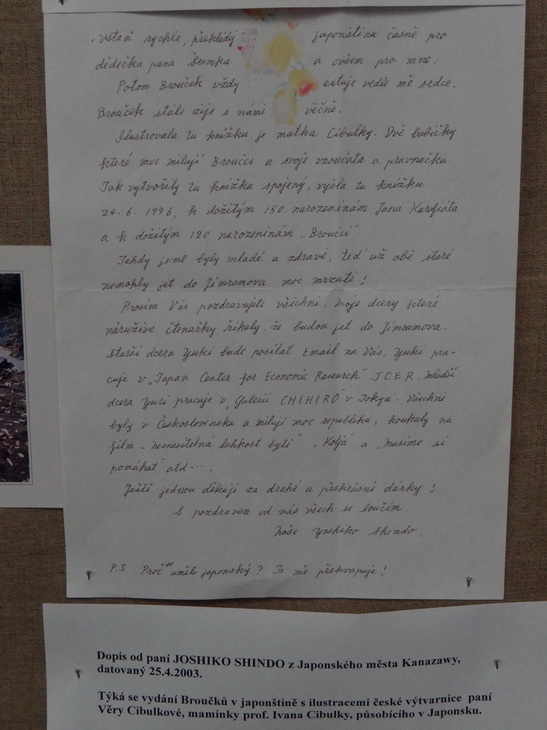 vstaň rychle, překlády japonštinu časně pro
dědečka pana Šramka a ovšem pro mne.
Potom Brouček vždy extuje vedle mé srdce.
Brouček stále žije s námi věčně.
Ilustrovala tu knížku je matka Cibulky. Dvě babičky
které moc milují Broučci a svoje vnoučata a pravnučku.
Tak vytvořily tu knížka spojený, vyšla tu knížku
24.6.1996, k dožitým 150. narozeninám Jana Karafiáta
a k dožitým 120 narozeninám „Broučci“.
Tehdy jsme byly mladé a zdravé, teď už obě staré
nemohly jet do Jimramova moc mrzuté!
Prosím Vás pozdravujte všichni. Moje dcery které
náruživé čtenářky říkaly, že budou jet do Jimramova.
Starší dcera Yuki bude posílat Email na Vás, Yuki pra-
cuje v „Japan Center for Economic Research“ J.C.E.R. Mladší
dcera Yuri pracuje v „Galerii CHIHIRO“ v Tokyu. Všichni
byly v Československa a milují moc republiku, koukaly na
film „nesnesitelná lehkost bytí“ „Kolja“ a „Musíme si
pomáhat“ atd....
Ještě jednou děkuji za drahé a překrásné dárky!
S pozdravem od nás všech se loučím.
Vaše Yoshiko Shindo.
P.S Proč umíte japonský? To mě překvapuje!
Dopis od paní JOSHIKO SHINDO z Japonského města Kanazawy,
datovaný 25.4.2003.
Týká se vydání Broučků v japonštině s ilustracemi české výtvarnice paní
Věry Cibulkové, maminky prof. Ivana Cibulky, působícího v Japonsku.